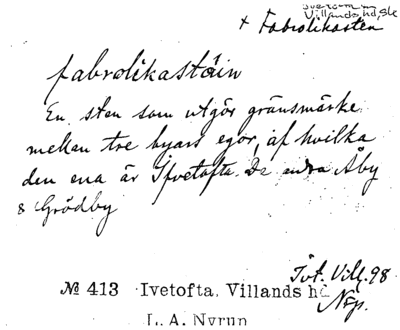 Villands hd, Sk
+ Fabrolikasten
fabrolikastäin
En sten som utgör gränsmärke
mellan tre byars egor, af hvilka
den ena är Ifvetofta. De andra Åby
& Grödby
Ivt. Vill. 98
Nrp.
№ 413 Ivetofta, Villands hd
L. A. Nyrup